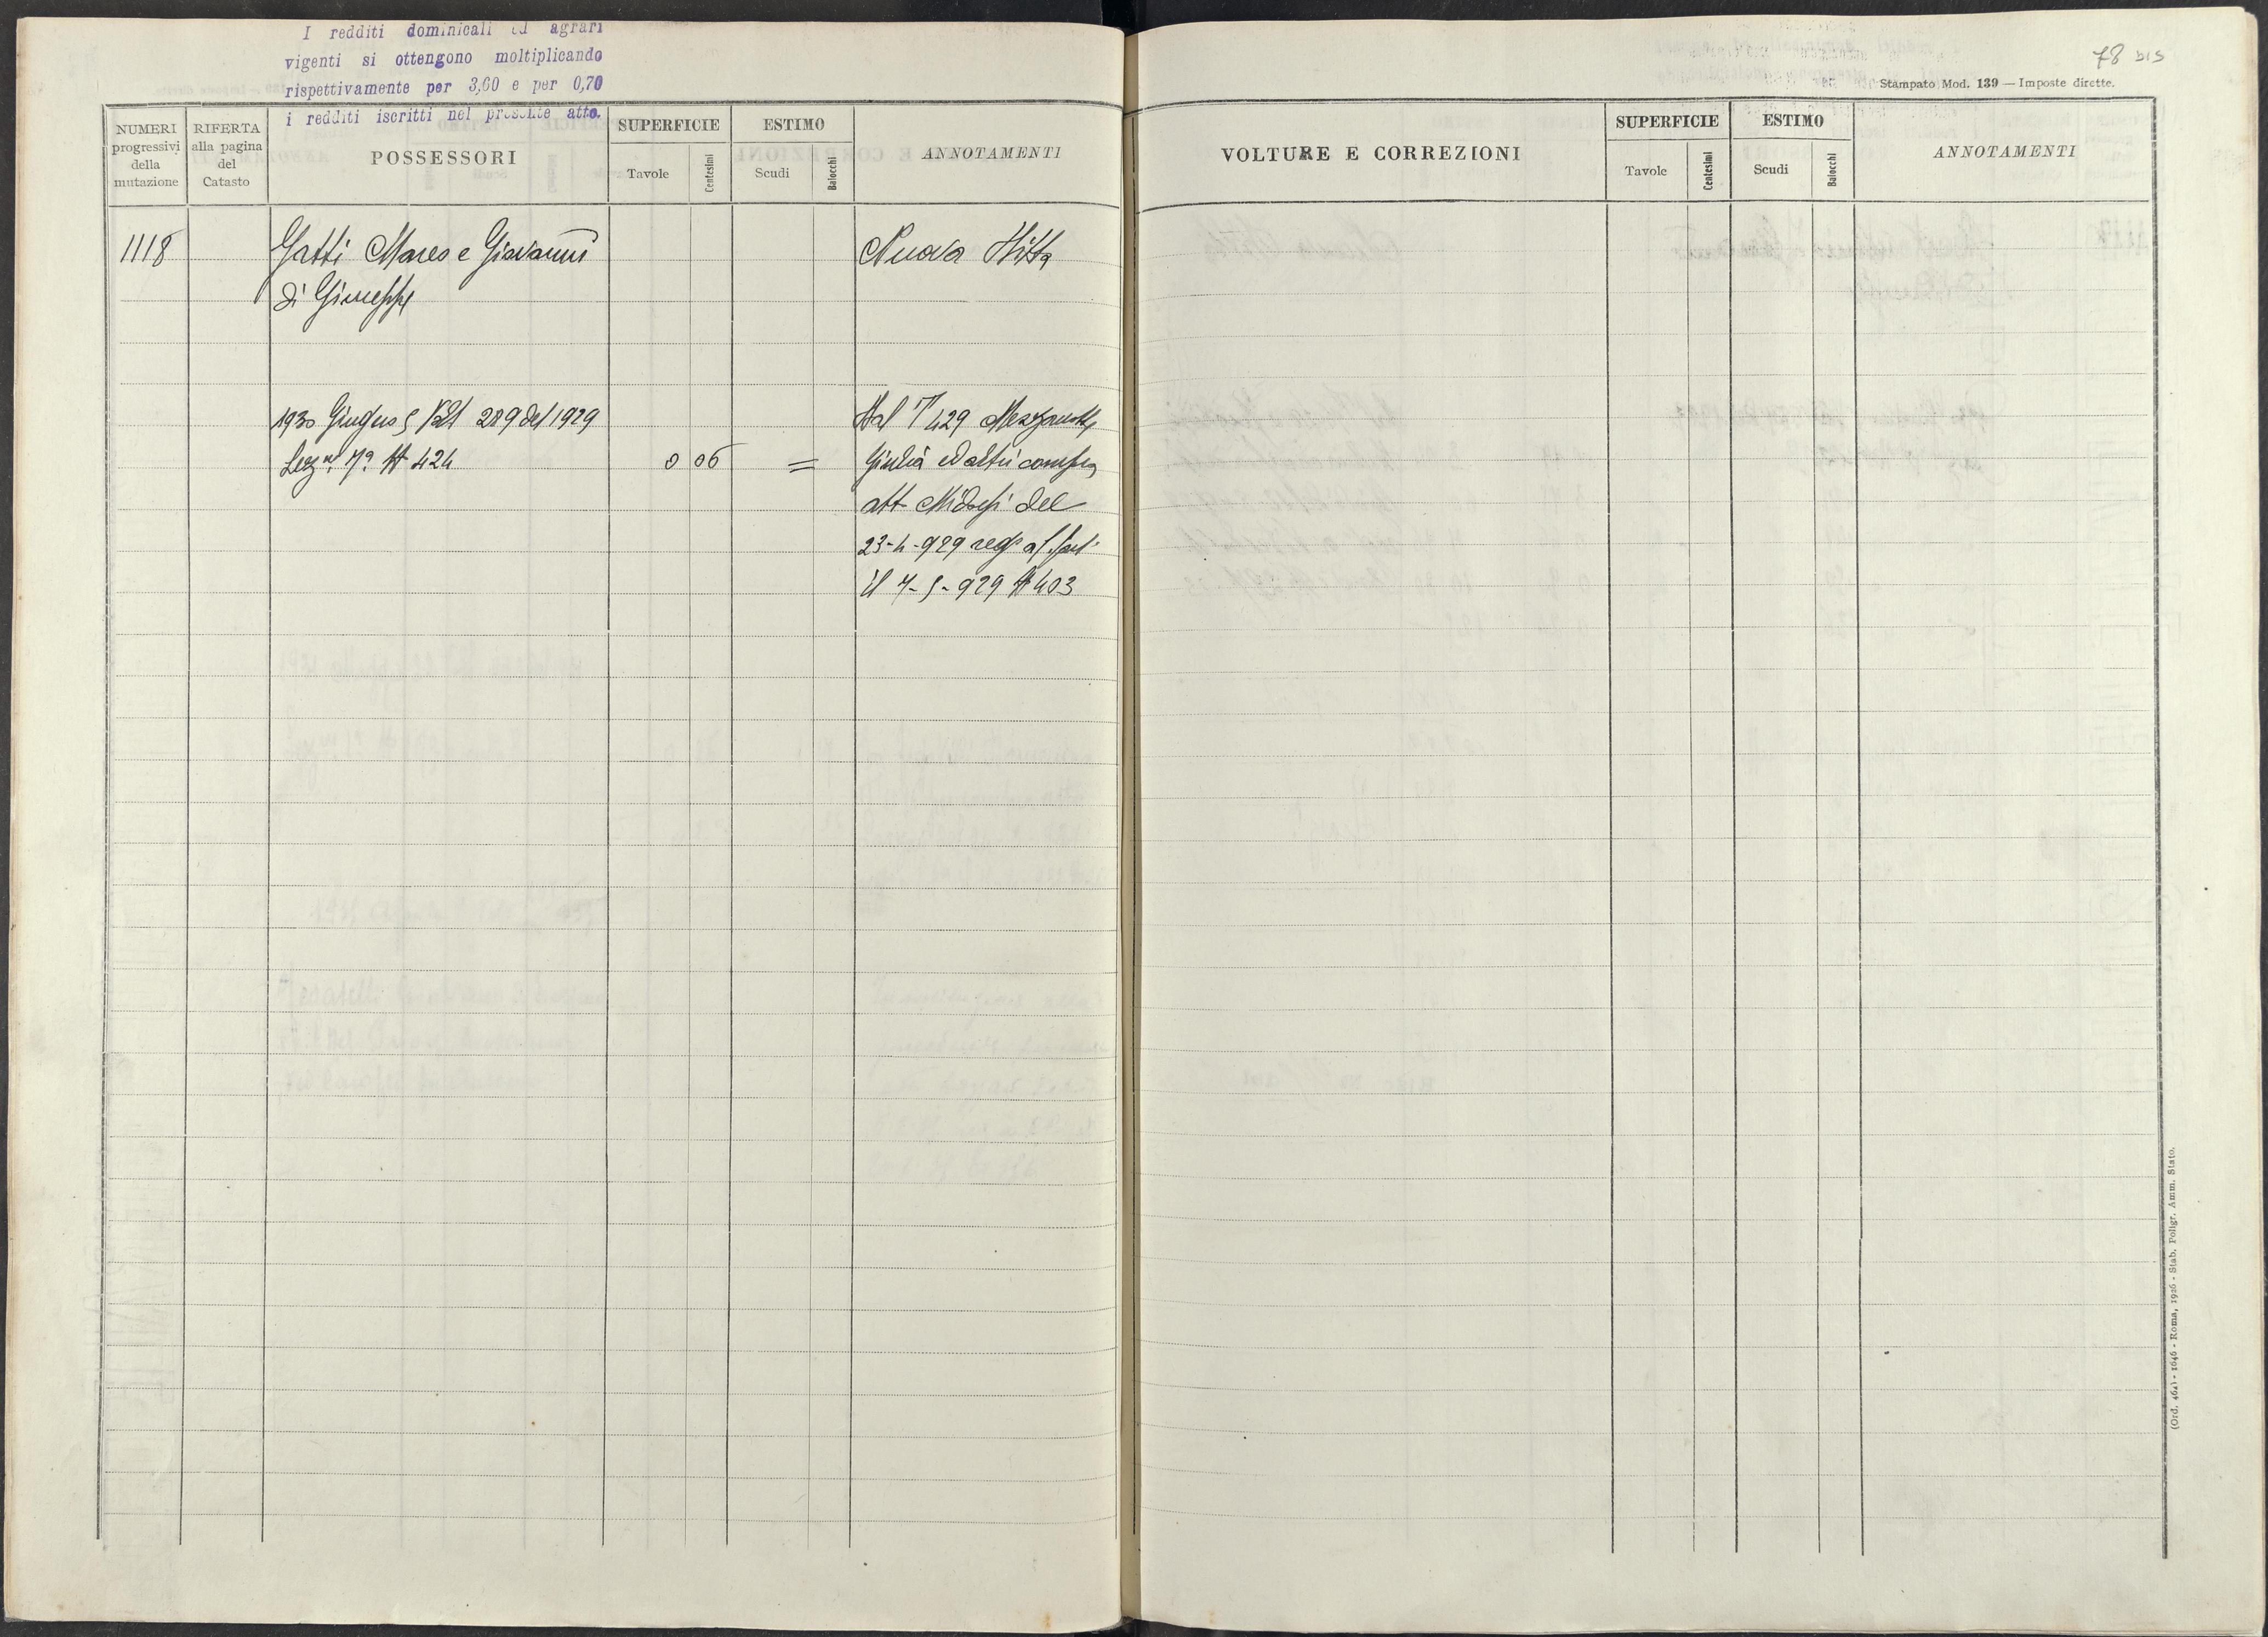 I redditi dominicali ed agrari
vigenti si ottengono moltiplicando
rispettivamente per 3,60 e per 0,70
i redditi iscritti nel presente atto.
NUMERI
progressivi
della
mutazione
RIFERTA
alla pagina
del
Catasto
POSSESSORI
SUPERFICIE
Tavole
Centesimi
ESTIMO
Scudi
Baiocchi
ANNOTAMENTI
1118
Gatti Marco e Giovanni
di Giuseppe
Nuova Ditta
1930 Giugno 5 289 del 1929
7ª N 424
0 06
=
Dal 429
Giulia ed altri
att del
23-4-929
il 7-5-929 N 403
78 BIS
Stampato Mod. 139 — Imposte dirette.
VOLTURE E CORREZIONI
SUPERFICIE
Tavole
Centesimi
ESTIMO
Scudi
Baiocchi
ANNOTAMENTI
(Ord. 464) - 1646 - Roma, 1926 - Stab. Poligr. Amm. Stato.